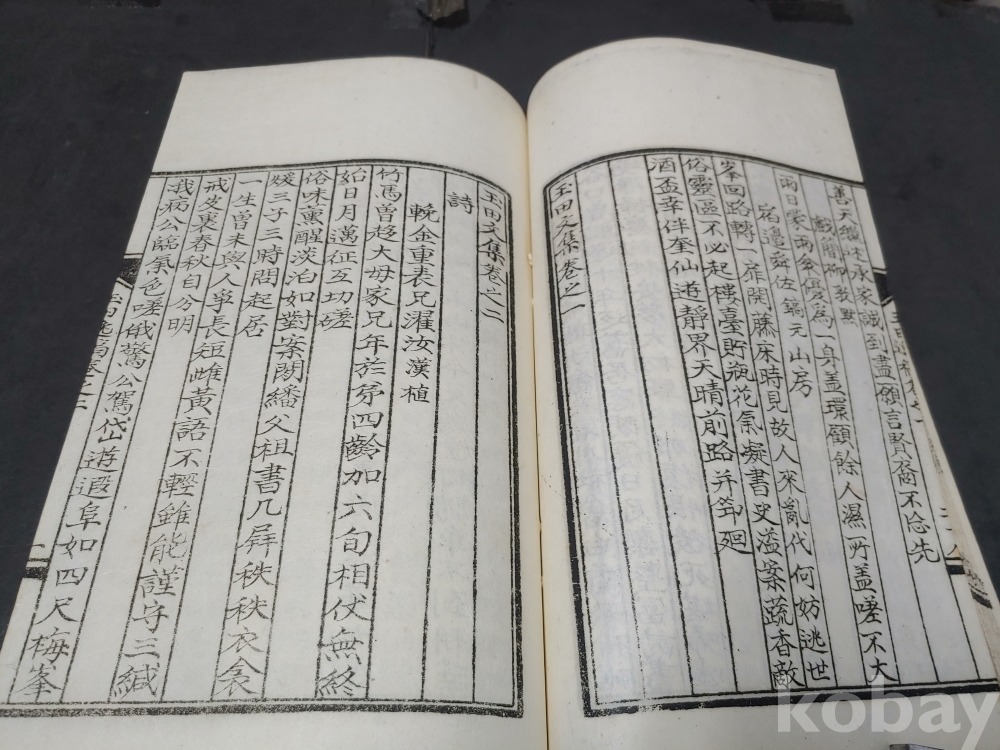 善天繼述承家誠到盡願言賢裔不忝先
戲贈柳敬黙
兩日蒙兩傘優爲一身盖環顧餘人濕一所盖嗟不大
宿邊舜佐鎬元山房
峯回路轉一扉開藤床時見故人來亂代何妨逃世
俗靈區不必起樓臺貯瓶花氣凝書史滥案蔬香敵
酒盃幸伴奎仙遊靜界天晴前路并筇廻
玉田文集卷之一
玉田文集卷之二
詩
輓金重表兄濯汝漢植
竹馬曽趍大母家兄年於弟四齡加六旬相仗無終
始日月邁征互切磋
俗味熏醒淡泊如對案閒繙父祖書几屛秩秩衣衾
煖三子三時問起居
一生曽未與人爭長短雌黃語不輕雖能謹守三緘
戒皮裏春秋自分明
我病公臨氣色嗟俄驚公駕岱遊遐阜如四尺梅峯
kobay